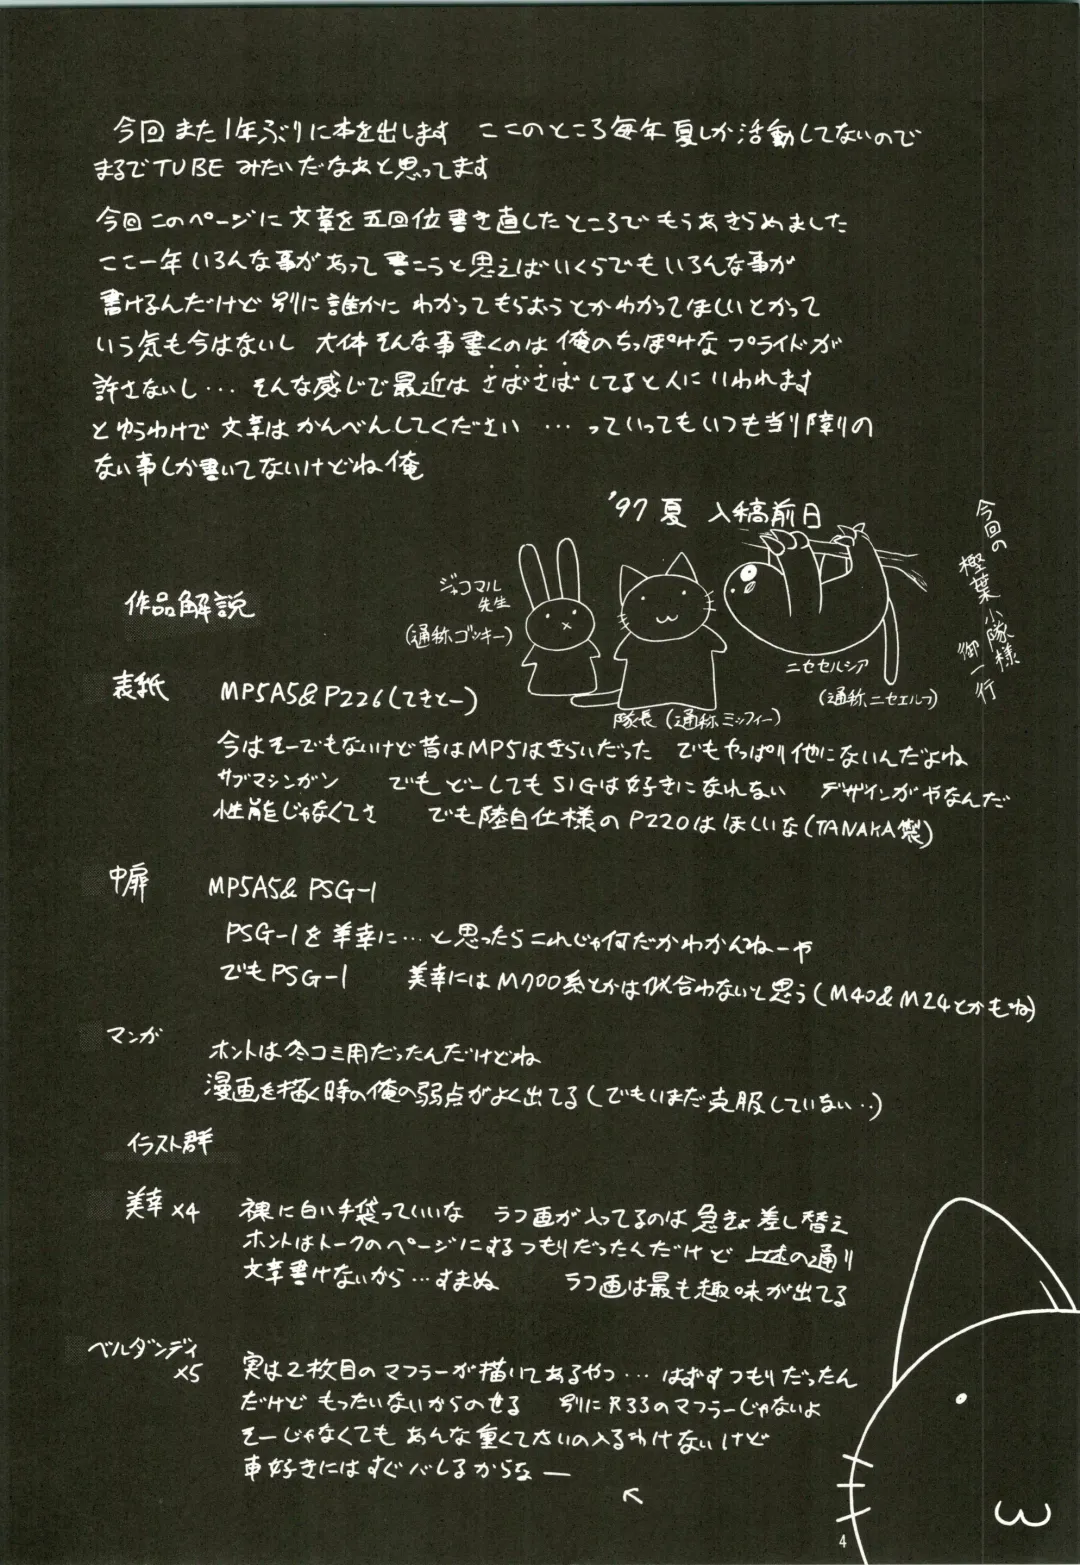 今回また1年ぶりに本を出します ここのところ毎年夏しか活動してないので
まるでTUBEみたいだなあと思ってます
今回このページに文章を五回位書き直したところでもうあきらめました
ここ一年いろんな事があって書こうと思えばいくらでもいろんな事が
書けるんだけど別に誰かにわかってもらおうとかわかってほしいとかって
いう気も今はないし 大体そんな事書くのは俺のちっぽけなプライドが
許さないし… そんな感じで最近はさばさばしてると人にいわれます
とゆうわけで文章はかんべんしてください …っていってもいつも当り障りの
ない事しか書いてないけどね俺
'97夏 入稿前日
今回の
樫葉小隊様
御一行
ジャコマル
先生
(通称ゴッキー)
隊長(通称ミッフィー)
ニセセルシア
(通称ニセエルフ)
作品解説
表紙 MP5A5&P226(てきとー)
今はそーでもないけど昔はMP5はきらいだった でもやっぱり他にないんだよね
サブマシンガン でもどーしてもSIGは好きになれない デザインがやなんだ
性能じゃなくてさ でも陸自仕様のP220はほしいな(TANAKA製)
中扉 MP5A5&PSG-1
PSG-1を美幸に…と思ったらこれじゃ何だかわかんねーや
でもPSG-1 美幸にはM700系とかは似合わないと思う(M40&M24とかもね)
マンガ ホントは冬コミ用だったんだけどね
漫画を描く時の俺の弱点がよく出てる(でもいまだ克服していない‥)
イラスト群
美幸×4 裸に白い手袋っていいな ラフ画が入ってるのは急きょ差し替え
ホントはトークのページにするつもりだったんだけど上述の通り
文章書けないから…すまぬ ラフ画は最も趣味が出てる
ベルダンディ
×5
実は2枚目のマフラーが描いてあるやつ…はずすつもりだったん
だけどもったいないからのせる 別にR33のマフラーじゃないよ
そーじゃなくてもあんな重くてさいの入るわけないけど
車好きにはすぐバレるからなー
4